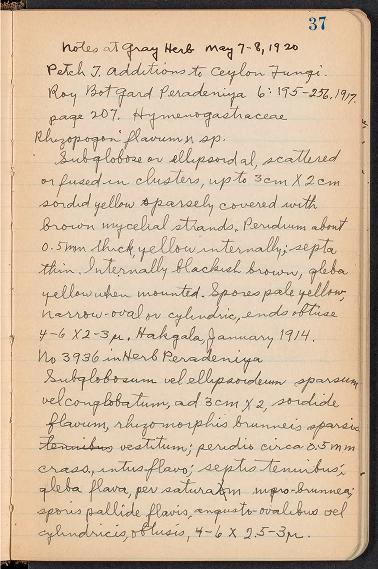 37
Notes at Gray Herb May 7-8, 1920
Petch T. Additions to Ceylon Fungi.
Roy Bot Gard Peradeniya 6: 195-256, 1917.
page 207. Hymenogastraceae
Rhizopogon flavum n sp.
Subglobose or ellipsoidal, scattered
or fused in clusters, up to 3cm X 2cm
sordid yellow sparsely covered with
brown mycelial strands. Peridium about
0.5mm thick, yellow internally; septa
thin. Internally blackish brown, gleba
yellow when mounted. Spores pale yellow,
narrow-oval or cylindric, ends obtuse
4-6 X 2-3µ. Hakgala, January 1914.
No 3936 in Herb Peradeniya
Subglobosum vel ellipsoideum sparsum
vel conglobatum, ad 3cm X 2, sordide
flavum, rhizomorphis brunneis sparsis
tenuibus vestitum; peridio circa 0.5mm
crass., intus flavo; septis tenuibus;
gleba flava, per saturam nigro-brunnea;
sporis pallide flavis, angusto-ovalibus vel
cylindricis, obtusis, 4-6 X 2.5-3µ.